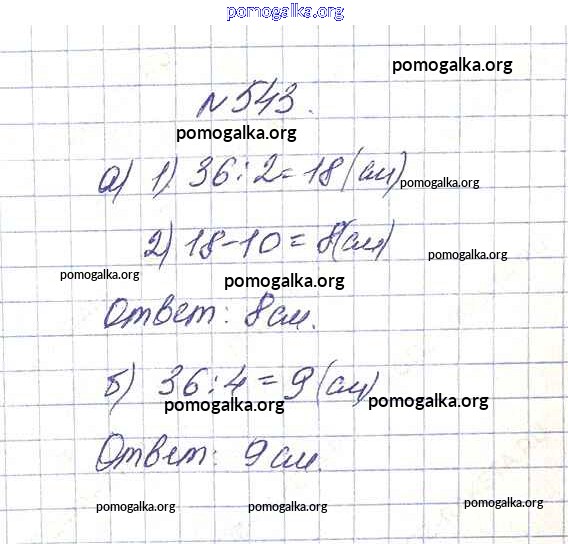 pomogalka.org
pomogalka.org
№ 543.
pomogalka.org
а) 1) 36 : 2 = 18 (см)
pomogalka.org
2) 18 - 10 = 8 (см)
pomogalka.org
pomogalka.org
pomogalka.org
Ответ: 8 см.
б) 36 : 4 = 9 (см)
pomogalka.org
pomogalka.org
Ответ: 9 см.
pomogalka.org
pomogalka.org
pomogalka.org